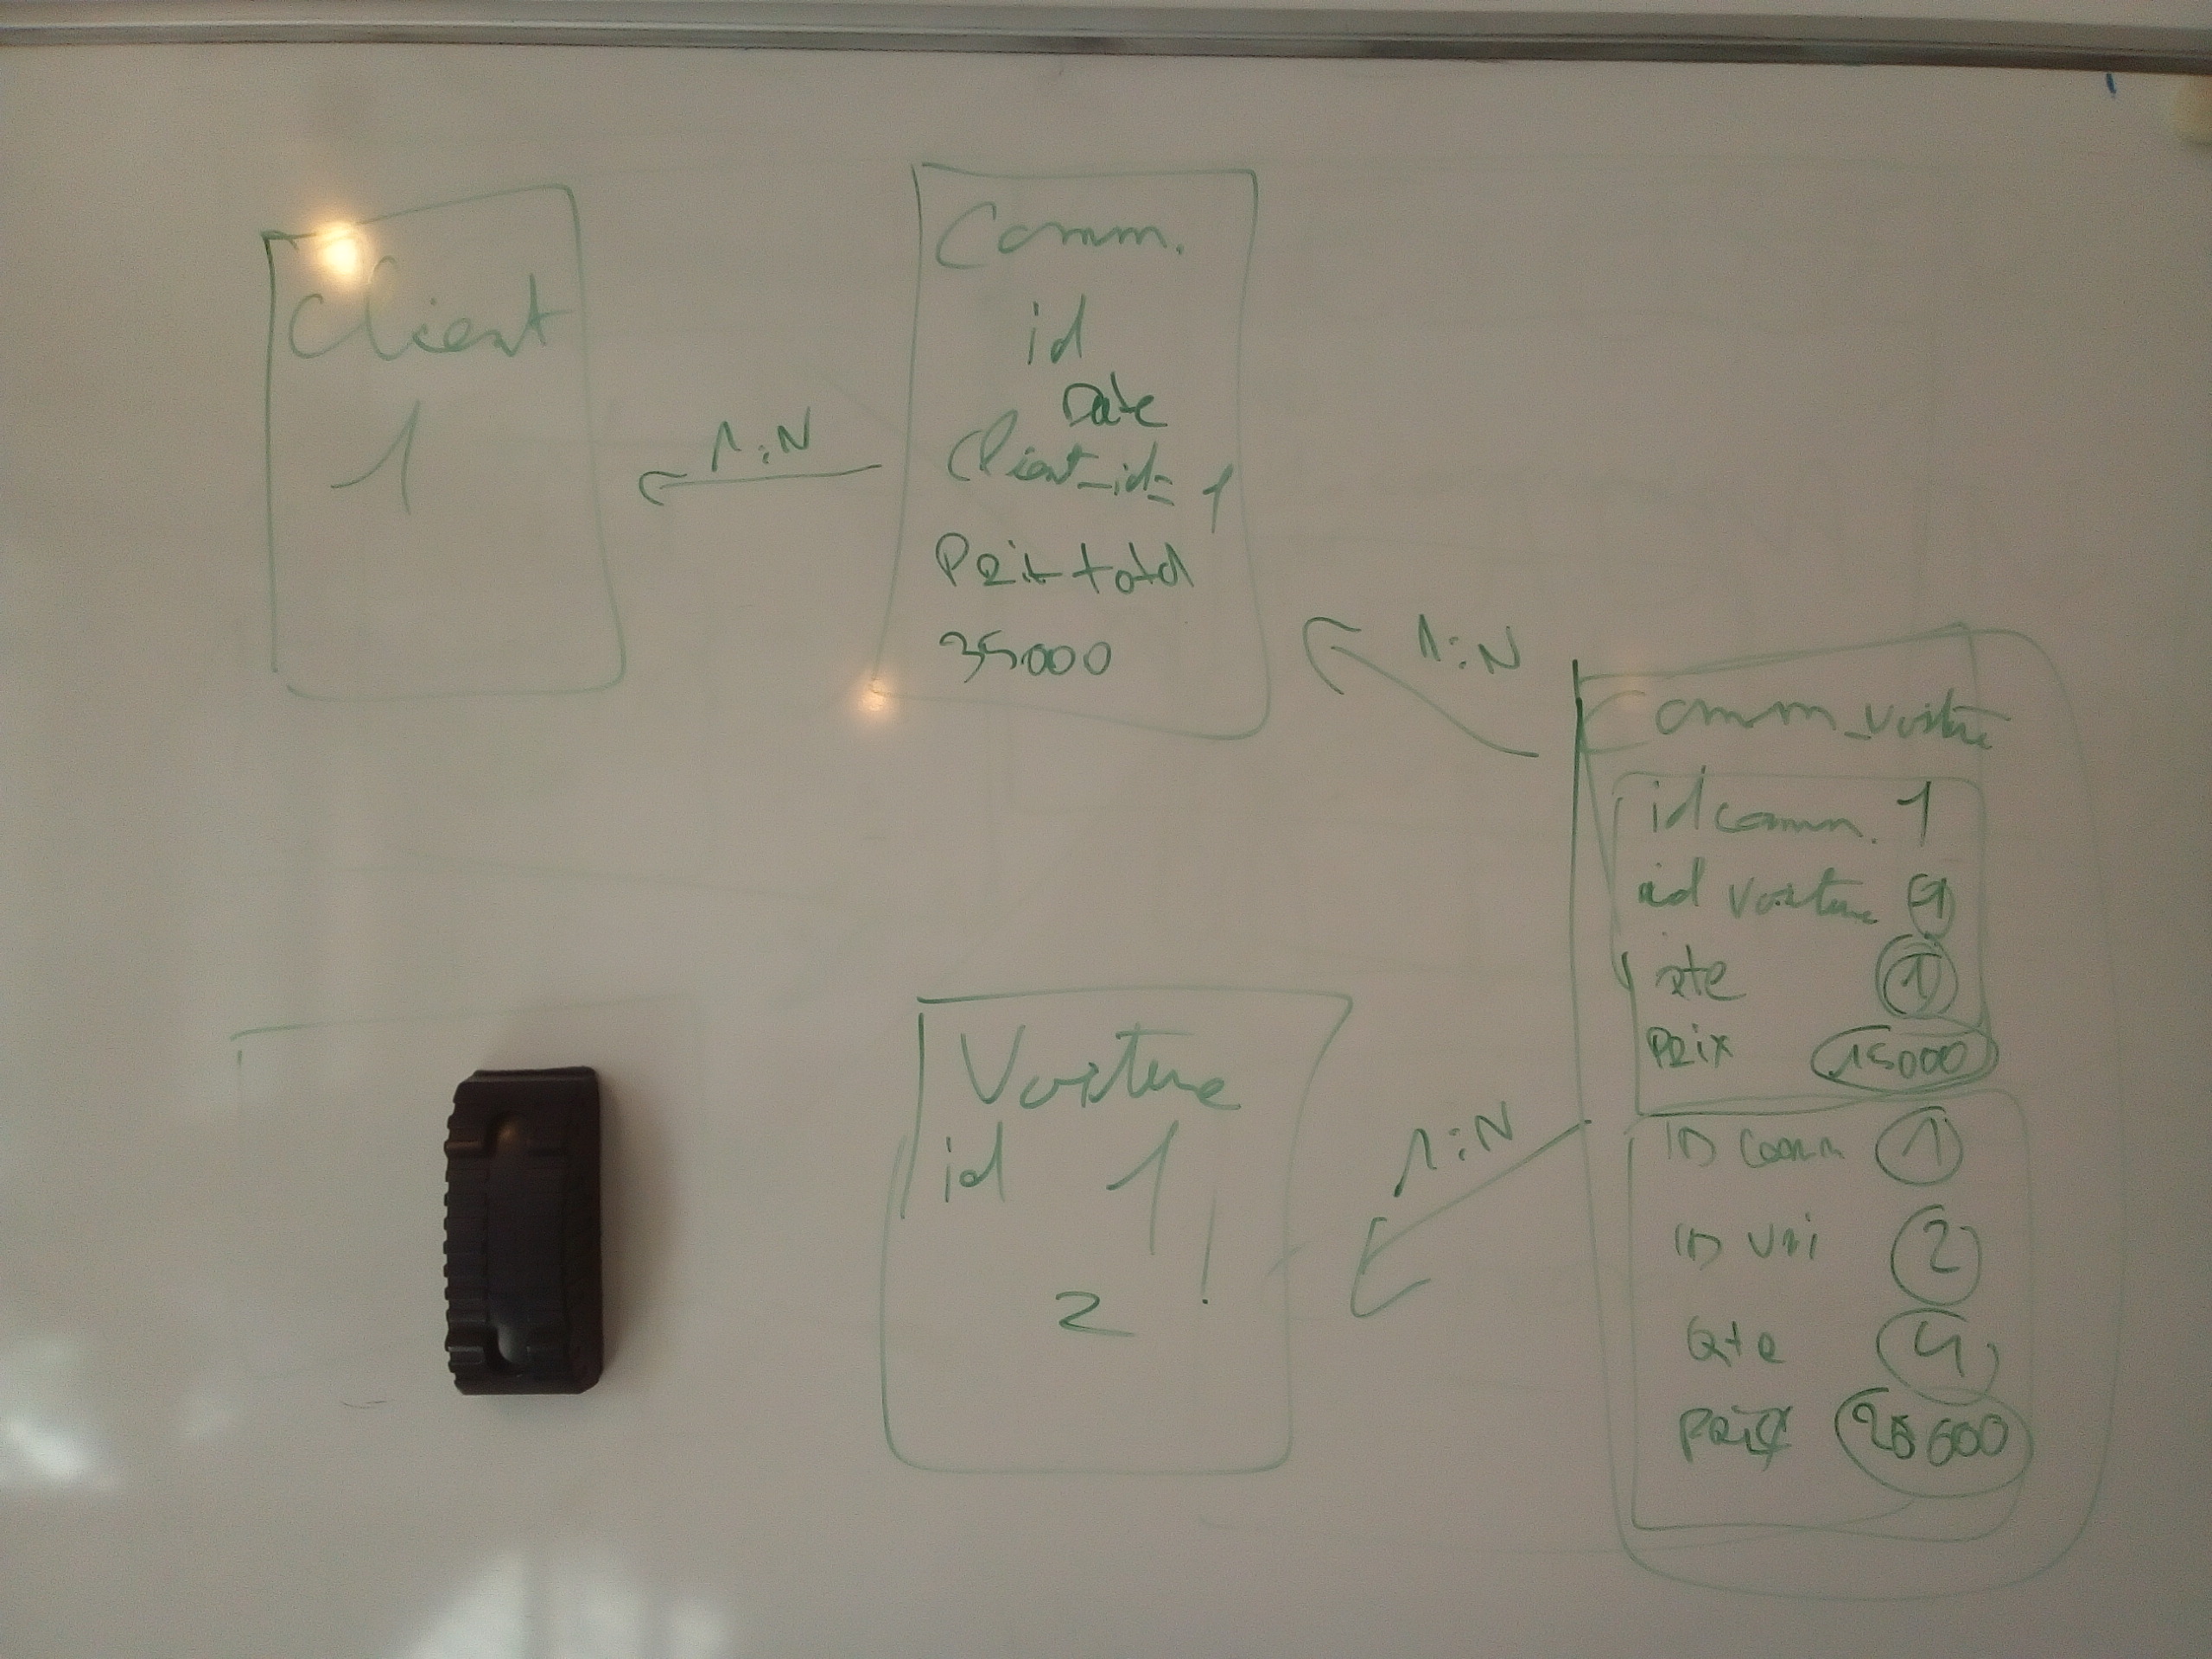 Client
1
1:N
Comm.
id
Date
Client_id= 1
Prix total
35000
1:N
Comm_voiture
id comm. 1
id voiture 1
qte 1
Prix 15000
ID Comm 1
ID Voi 2
Qte 4
Prix
1:N
Voiture
id 1
2